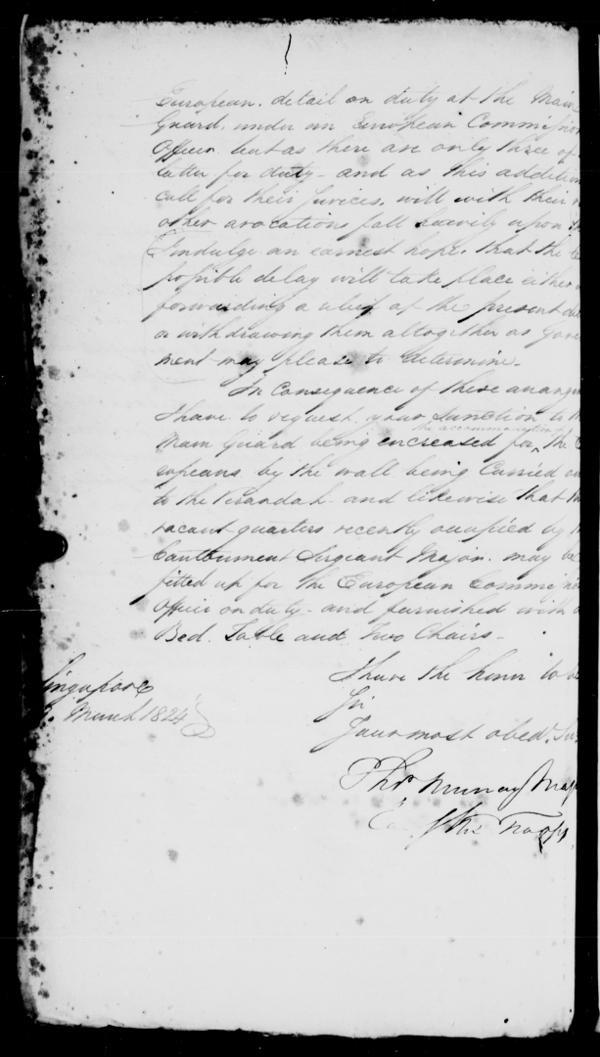 European detail on duty at the Main
Guard, under an European Commission
Officer but as there are only three of
latter for duty - and as this addition
call for their services, will with their
other avocations fall heavily upon
I indulge an earnest hope, that the
possible delay will take place either
forwarding a relief of the present
or withdrawing them altogether as Gover
ment may please to determine.
In Consequence of these arrang
I have to request your Sanction to
the accommodation of
Main Guard being encreased for the
ropeans by the wall being Carried
to the Verandah - and likewise that
vacant quarters recently occupied by
Cantonment Sergeant Major may be
fitted up for the European Commiss
Officer on duty - and furnished with
Bed, Table and Two Chairs -
I have the honor to be
Sir
Your most obedt. Ser
Singapore
March 1824
Thos. Murray Maj
Troops